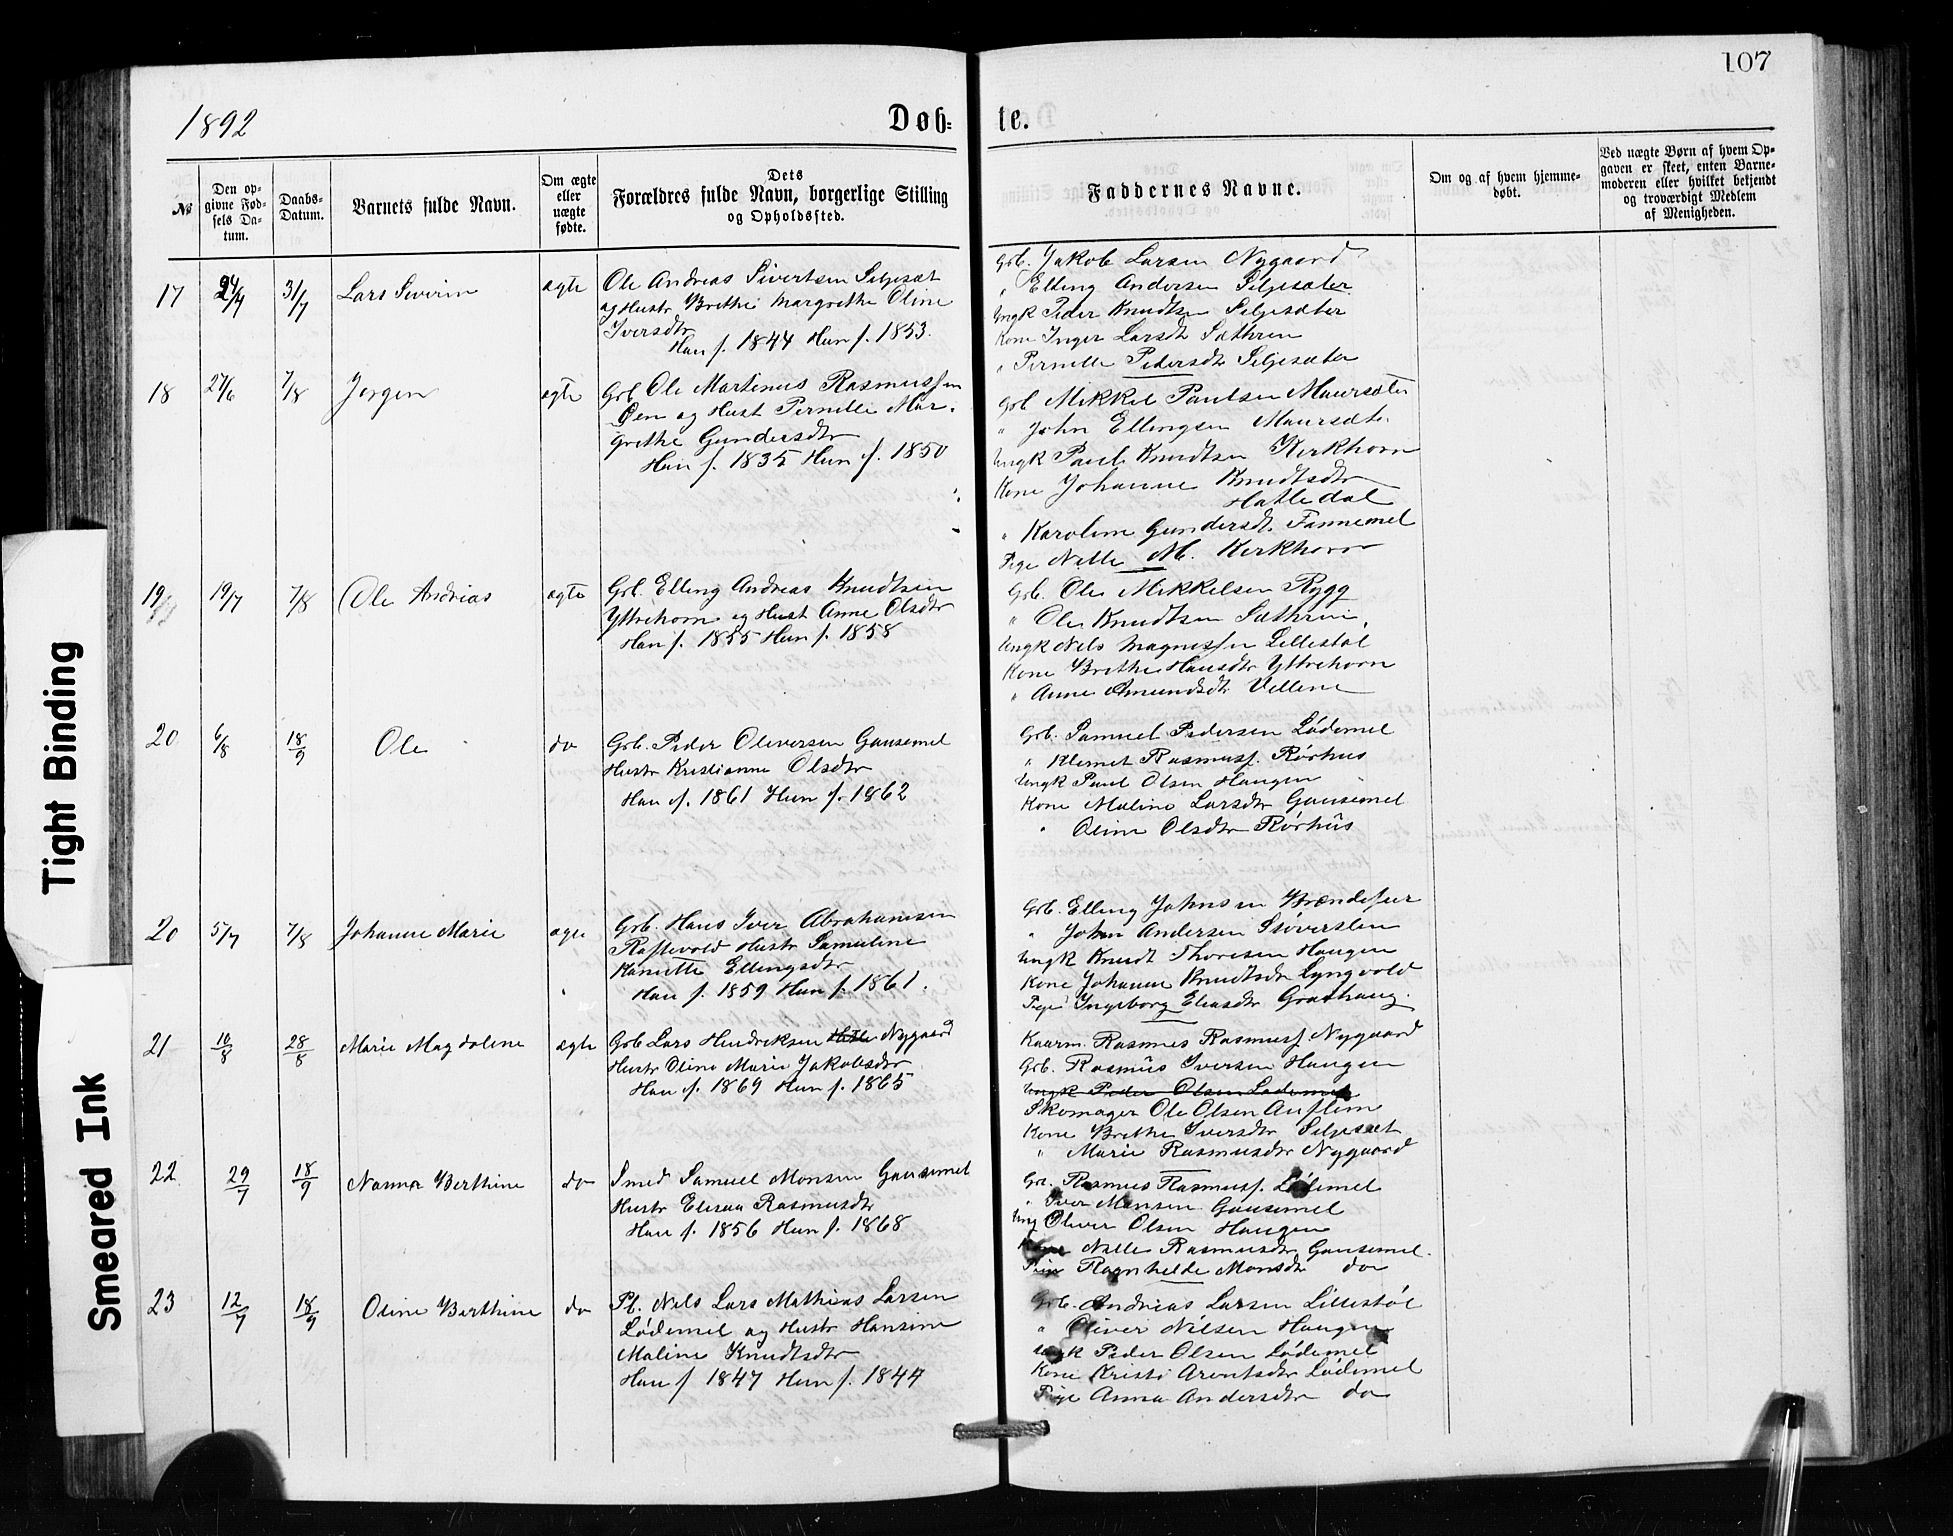 107
1892
Døb-
te.
№
Den opgivne Fødsels Datum.
Daabs-Datum.
Barnets fulde Navn.
Om ægte eller uægte fødte.
Dets Forældres fulde Navn, borgerlige Stilling og Opholdssted.
Faddernes Navne.
Om og af hvem hjemmedøbt.
Ved uægte Børn af hvem Opgaven er skeet, enten Barnemoderen eller hvilket bekjendt og troværdigt Medlem af Menigheden.
17 31/7 Lars Severin ægte
Ole Andreas Sivertsen Seljesæt
og Hustr Brethe Margrethe Oline
Iversdtr
Han f. 1844 Hun f. 1853.
Grb. Jakob Larsen Nygaard
" Elling Andersen Seljesæter
Ungk Peder Knudtsen Seljesæter
Kone Inger Larsdtr Sæthren
" Pernille Pedersdtr Seljesæter
18 27/6 7/8 Jørgen ægte
Grb Ole Martinus Rasmussen
Øen og Hust Pernille Mar-
grethe Gundersdtr
Han f. 1835 Hun f. 1850
Grb Mikkel Paulsen Maursæter
" John Ellingsen Maursæter
Ungk Paul Knudtsen Kirkhorn
Kone Johanne Knudtsdtr
Hatledal
" Karoline Gundersdtr Fannemel
Pige Nille M. Kirkhorn
19 19/7 7/8 Ole Andrias ægte
Grb. Elling Andreas Knudtsen
Yttrehorn og Hust Anne Olsdtr
Han f. 1855 Hun f. 1858
Grb. Ole Mikkelsen Rygg
" Ole Knudtsen Sæthren
Ungk Nils Magnussen Lillestøl
Kone Brethe Hansdtr Yttrehorn
" Anne Amundsdtr Vellene
20 6/8 18/9 Ole do
Grb. Peder Oliversen Gausemel
Hustr Kristianne Olsdtr
Han f. 1861 Hun f. 1862
Grb. Samuel Pedersen Lødemel
" Klemet Rasmuss. Rørhus
Ungk Paul Olsen Haugen
Kone Maline Larsdtr Gausemel
" Oline Olsdtr Rørhus
20 5/7 7/8 Johanne Marie ægte
Grb. Hans Iver Abrahamsen
Raftevold Hustr Samuline
Hanette Ellingsdtr
Han f. 1859 Hun f. 1861.
Grb. Elling Johnsen
" John Andersen
Ungk Knudt Thoresen Haugen
Kone Johanne Knudtsdtr Lyngvold
Pige Ingeborg Eliasdtr
21 10/8 28/8 Marie Magdalene ægte
Grb Lars Hendriksen Nygaard
Hustr Oline Marie Jakobsdtr
Han f. 1869 Hun f. 1865
Kaarm. Rasmus Rasmuss Nygaard
Grb. Rasmus Iversen Haugen
Ungk Peder Olsen Lødemel
Skomager Ole Olsen Auflem
Kone Brethe Iversdtr Seljesæt
" Marie Rasmusdtr Nygaard
22 29/7 18/9 Nanna Berthine do
Smed Samuel Monsen Gausemel
Hustr Elisaa Rasmusdtr
Han f. 1856 Hun f. 1868
Grb. Rasmus Rasmuss. Lødemel
" Iver Monsen Gausemel
Ung Oliver Olsen Haugen
Kone Nille Rasmusdtr Gausemel.
Pige Ragnhilde Monsdtr do
23 12/7 18/9 Oline Berthine do
Pl. Nils Lars Mathias Larsen
Lødemel og Hustr Hansine
Maline Knudtsdtr
Han f 1847 Hun f. 1844
Grb. Andrias Larsen Lillestøl
" Oliver Nilsen Haugen
Ungk Peder Olsen Lødemel
Kone Kristi Arentsdtr Lødemel
Pige Anna Andersdtr do
Tight Binding
Smeared Ink